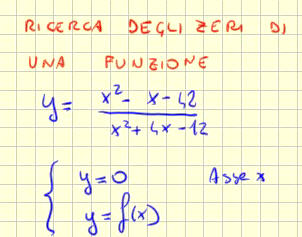 RICERCA DEGLI ZERI DI
UNA FUNZIONE
y = (x² - x - 42) / (x² + 4x - 12)
{ y = 0 Asse x
y = f(x)